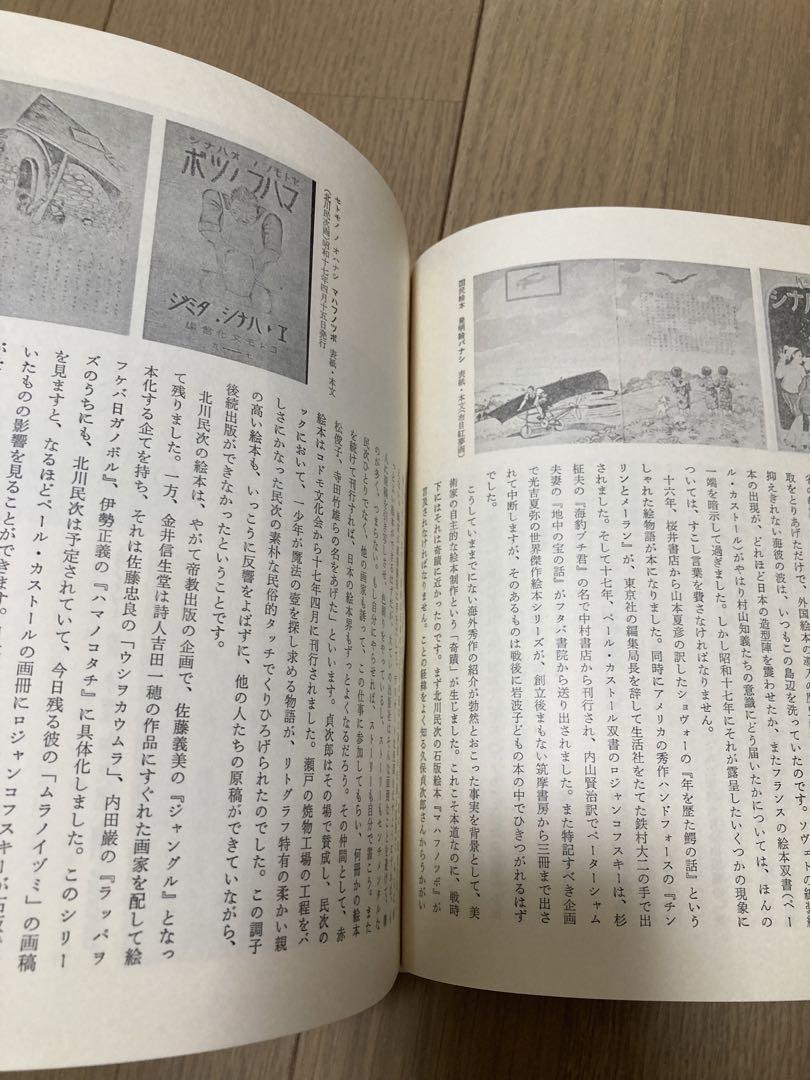 国民絵本 発明絵バナシ 表紙・本文(布目紅夢画)
抑えきれない海彼の波は、いつもこの島辺を洗っていたのです。ソヴェトの
本の出現が、どれほど日本の造型陣を震わせたか、またフランスの絵本双書(ペー
ル・カストール)がやはり村山知義たちの意識にどう届いたかについては、ほんの
一端を暗示して過ぎました。しかし昭和十七年にそれが露呈したいくつかの現象に
ついては、すこし言葉を費さなければなりません。
十六年、桜井書店から山本夏彦の訳したショヴォーの『年を歴た鰐の話』という
しゃれた絵物語が本になりました。同時にアメリカの秀作ハンドフォースの『チン
リンとメーラン』が、東京社の編集局長を辞して生活社をたてた鉄村大二の手で出
されました。そして十七年、ペール・カストール双書のロジャンコフスキーは、杉
柾夫の『海豹ブチ君』の名で中村書店から刊行され、内山賢治訳でペーターシャム
夫妻の『地中の宝の話』がフタバ書院から送り出されました。また特記すべき企画
で光吉夏弥の世界傑作絵本シリーズが、創立後まもない筑摩書房から三冊まで出さ
れて中断しますが、そのあるものは戦後に岩波子どもの本の中でひきつがれるはず
でした。
こうしていままでにない海外秀作の紹介が勃然とおこった事実を背景として、美
術家の自主的な絵本制作という「奇蹟」が生じました。これこそ本道なのに、戦時
下にはそれは奇蹟に近かったのです。まず北川民次の石版絵本『マハフノツボ』が
言及されなければなりません。ことの経緯をよく知る久保貞次郎さんからうかがい
セトモノ ノ オハナシ マハフノツボ 表紙・本文
(北川民次画)昭和十七年四月十五日発行
セトモノ ノ オハナシ
マハフノツボ
エ ト ハナシ・タミジ
コドモ文化会編
のが多く、つまらない。もし自分にやらせれば、ストーリーも自分で書こう。また
民次ひとりでなく、他の画家も誘って、この仕事に参加してもらい、何冊かの絵本
を続けて刊行すれば、日本の絵本界もずっとよくなるだろう。その仲間として、赤
松俊子、寺田竹雄らの名をあげた」といいます。貞次郎はその場で賛成し、民次の
絵本はコドモ文化会から十七年四月に刊行されました。瀬戸の焼物工場の工程をバ
ックにおいて、一少年が魔法の壺を探し求める物語が、リトグラフ特有の柔かい親
しさにかなった民次の素朴な民俗的タッチでくりひろげられたのでした。この調子
の高い絵本も、いっこうに反響をよばずに、他の人たちの原稿ができていながら、
後続出版ができなかったということです。
北川民次の絵本は、やがて帝教出版の企画で、佐藤義美の『ジャングル』となっ
て残りました。一方、金井信生堂は詩人吉田一穂の作品にすぐれた画家を配して絵
本化する企てを持ち、それは佐藤忠良の『ウシヲカウムラ』、内田巌の『ラッパヲ
フケバ日ガノボル』、伊勢正義の『ハマノコタチ』に具体化しました。このシリー
ズのうちにも、北川民次は予定されていて、今日残る彼の「ムラノイヅミ」の画稿
を見ますと、なるほどペール・カストールの画冊にロジャンコフスキーが
いたものの影響を見ることができます。